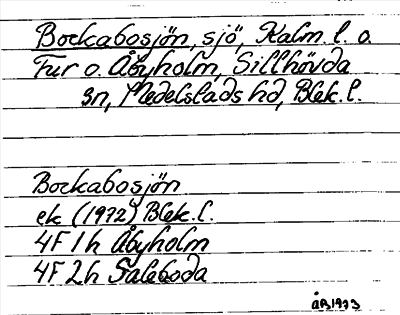 Bockabosjön, sjö, Kalm. l. o.
Fur o. Åbyholm, Sillhövda
sn, Medelstads hd, Blek. l.
Bockabosjön
ek (1972) Blek. l.
4F 1h Åbyholm
4F 2h Saleboda
ÅB 1973